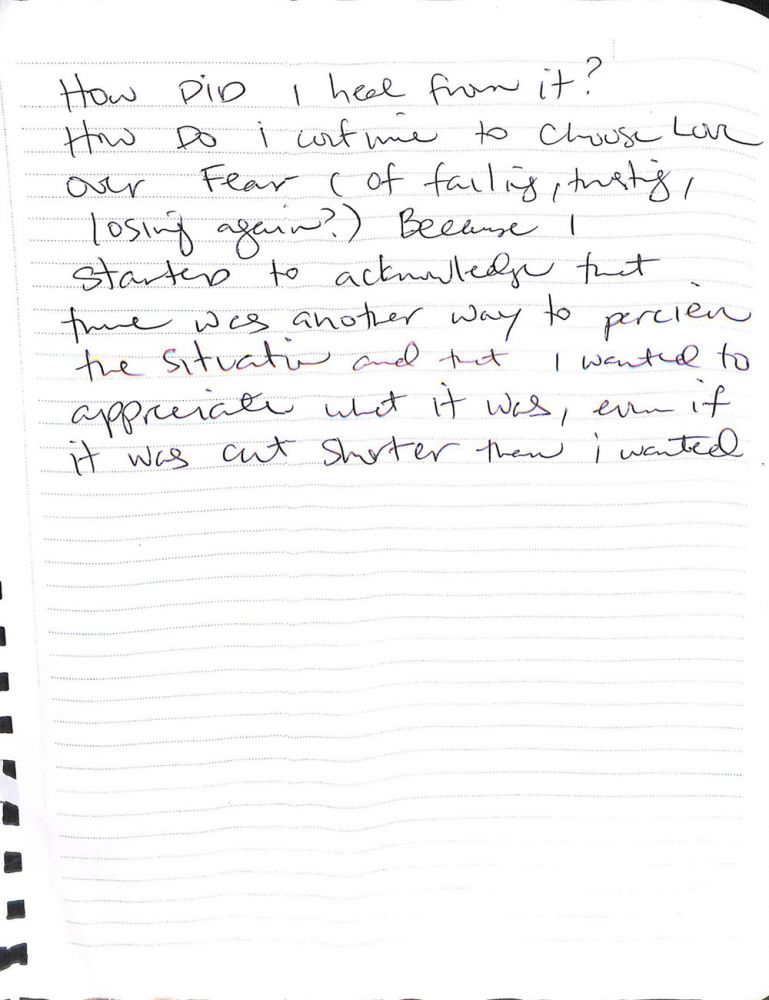 How DiD I heal from it?
How Do i continue to Choose Love
over Fear ( of failing, trusting,
losing again?) Because I
started to acknowledge that
there was another way to percieve
the situation and that I wanted to
appreciate what it was, even if
it was cut shorter then i wanted